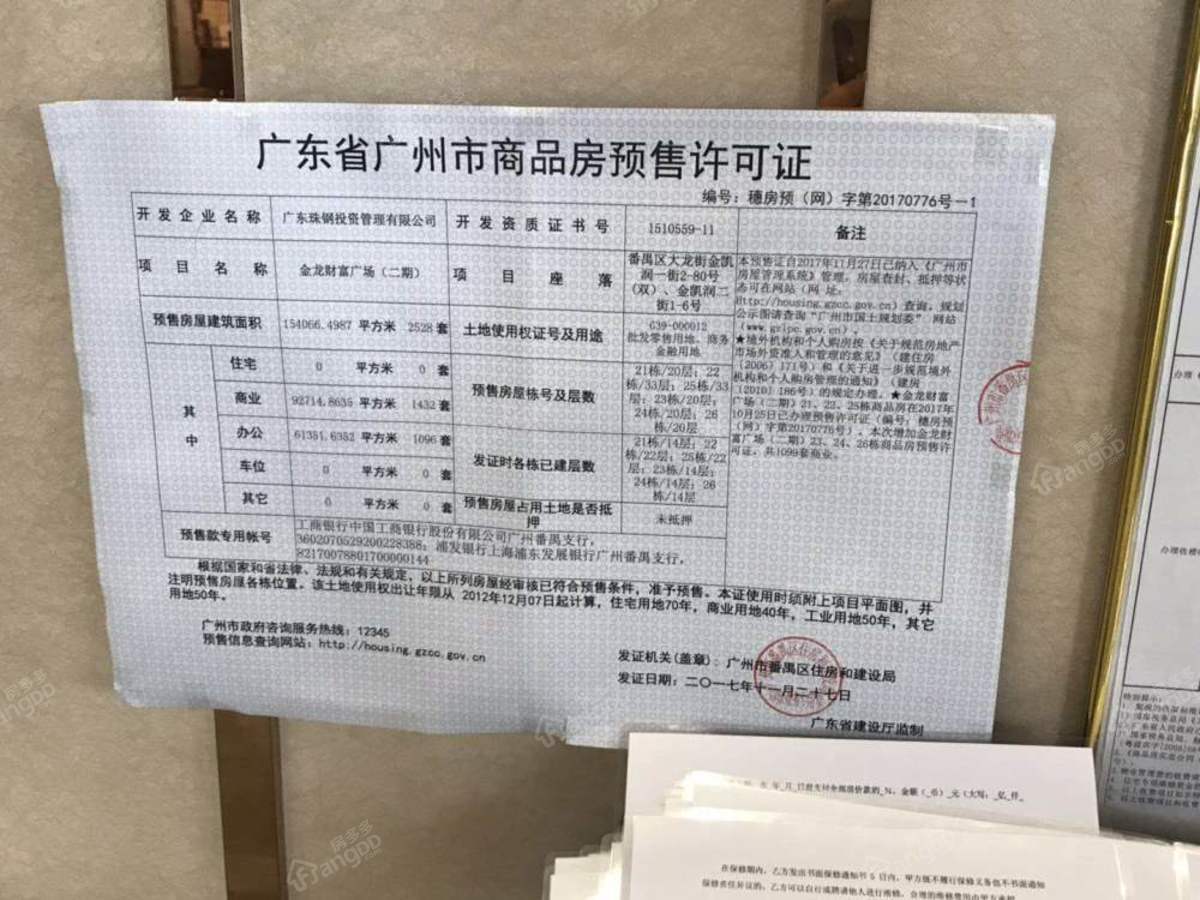 广东省广州市商品房预售许可证
编号：穗房预（网）字第20170776号-1
开发企业名称 广东珠钢投资管理有限公司 开发资质证书号 1510559-11 备注
项目名称 金龙财富广场（二期） 项目座落
番禺区大龙街金凯
润一街2-80号
（双）、金凯润二
街1-6号
预售房屋建筑面积 154066.4987 平方米 2528 套 土地使用权证号及用途
G39-000012
批发零售用地、商务
金融用地
其中
住宅 0 平方米 0 套
商业 92714.8635 平方米 1432 套
办公 61351.6352 平方米 1096 套
车位 0 平方米 0 套
其它 0 平方米 0 套
预售房屋栋号及层数
21栋/20层；22
栋/33层；25栋/33
层；23栋/20层；
24栋/20层；26
栋/20层
发证时各栋已建层数
21栋/14层；22
栋/22层；25栋/22
层；23栋/14层；
24栋/14层；26
栋/14层
预售房屋占用土地是否抵
押
未抵押
预售款专用帐号
工商银行中国工商银行股份有限公司广州番禺支行，
3602070529200228388；浦发银行上海浦东发展银行广州番禺支行，
82170078801700000144
本预售证自2017年11月27日已纳入《广州市
房屋管理系统》管理，房屋查封、抵押等状
态可在网站（网 址：
Http://housing.gzcc.gov.cn）查询，规划
公示图请查询“广州市国土规划委” 网站
（www.gzlpc.gov.cn）。
★境外机构和个人购房按《关于规范房地产
市场外资准入和管理的意见》（建住房
〔2006〕171号）和《关于进一步规范境外
机构和个人购房管理的通知》（建房
〔2010〕186号）的规定办理。★金龙财富
广场（二期）21、22、25栋商品房在2017年
10月25日已办理预售许可证（编号：穗房预
（网）字第20170776号），本次增加金龙财
富广场（二期）23、24、26栋商品房预售许
可证，共1099套商业。
根据国家和省法律、法规和有关规定，以上所列房屋经审核已符合预售条件，准予预售。本证使用时须附上项目平面图，并
注明预售房屋各栋位置。该土地使用权出让年限从 2012年12月07日起计算，住宅用地70年，商业用地40年，工业用地50年，其它
用地50年。
广州市政府咨询服务热线：12345
预售信息查询网站：http://housing.gzcc.gov.cn
发证机关(盖章)：广州市番禺区住房和建设局
发证日期：二〇一七年十一月二十七日
广东省建设厅监制
日前支付全部房价款的_%，金额（_币）_元（大写：_亿_仟
在保修期内，乙方发出书面保修通知书 5 日内，甲方既不履行保修义务也不书面通知
保修责任异议的，乙方可以自行或聘请他人进行维修，合理的维修费用由甲方承担
房多多
angDD